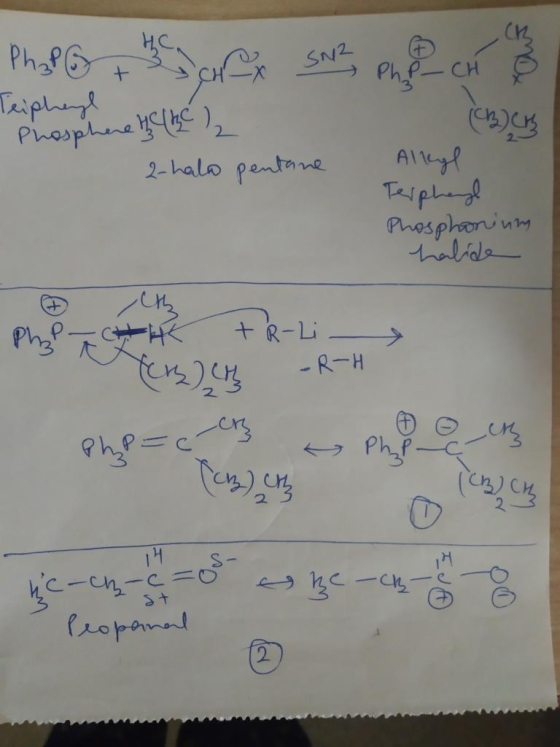 Ph3P: + H3C CH—X SN2 → Ph3P⊕—CH CH3 X⊖
H3C(H2C)2 (CH2)2CH3
Triphenyl
Phosphene
2-halo pentane
Alkyl
Triphenyl
Phosphonium
halide
Ph3P⊕—C—H CH3 (CH2)2CH3 + R-Li →
-R-H
Ph3P=C CH3 (CH2)2CH3 ↔ Ph3P⊕—C⊖ CH3 (CH2)2CH3
1
H3C—CH2—CH=O δ- δ+ ↔ H3C—CH2—CH⊕—O⊖
Propanal
2